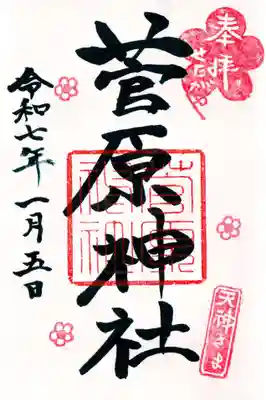 奉拝
菅原神社
天神さま
令和七年一月五日